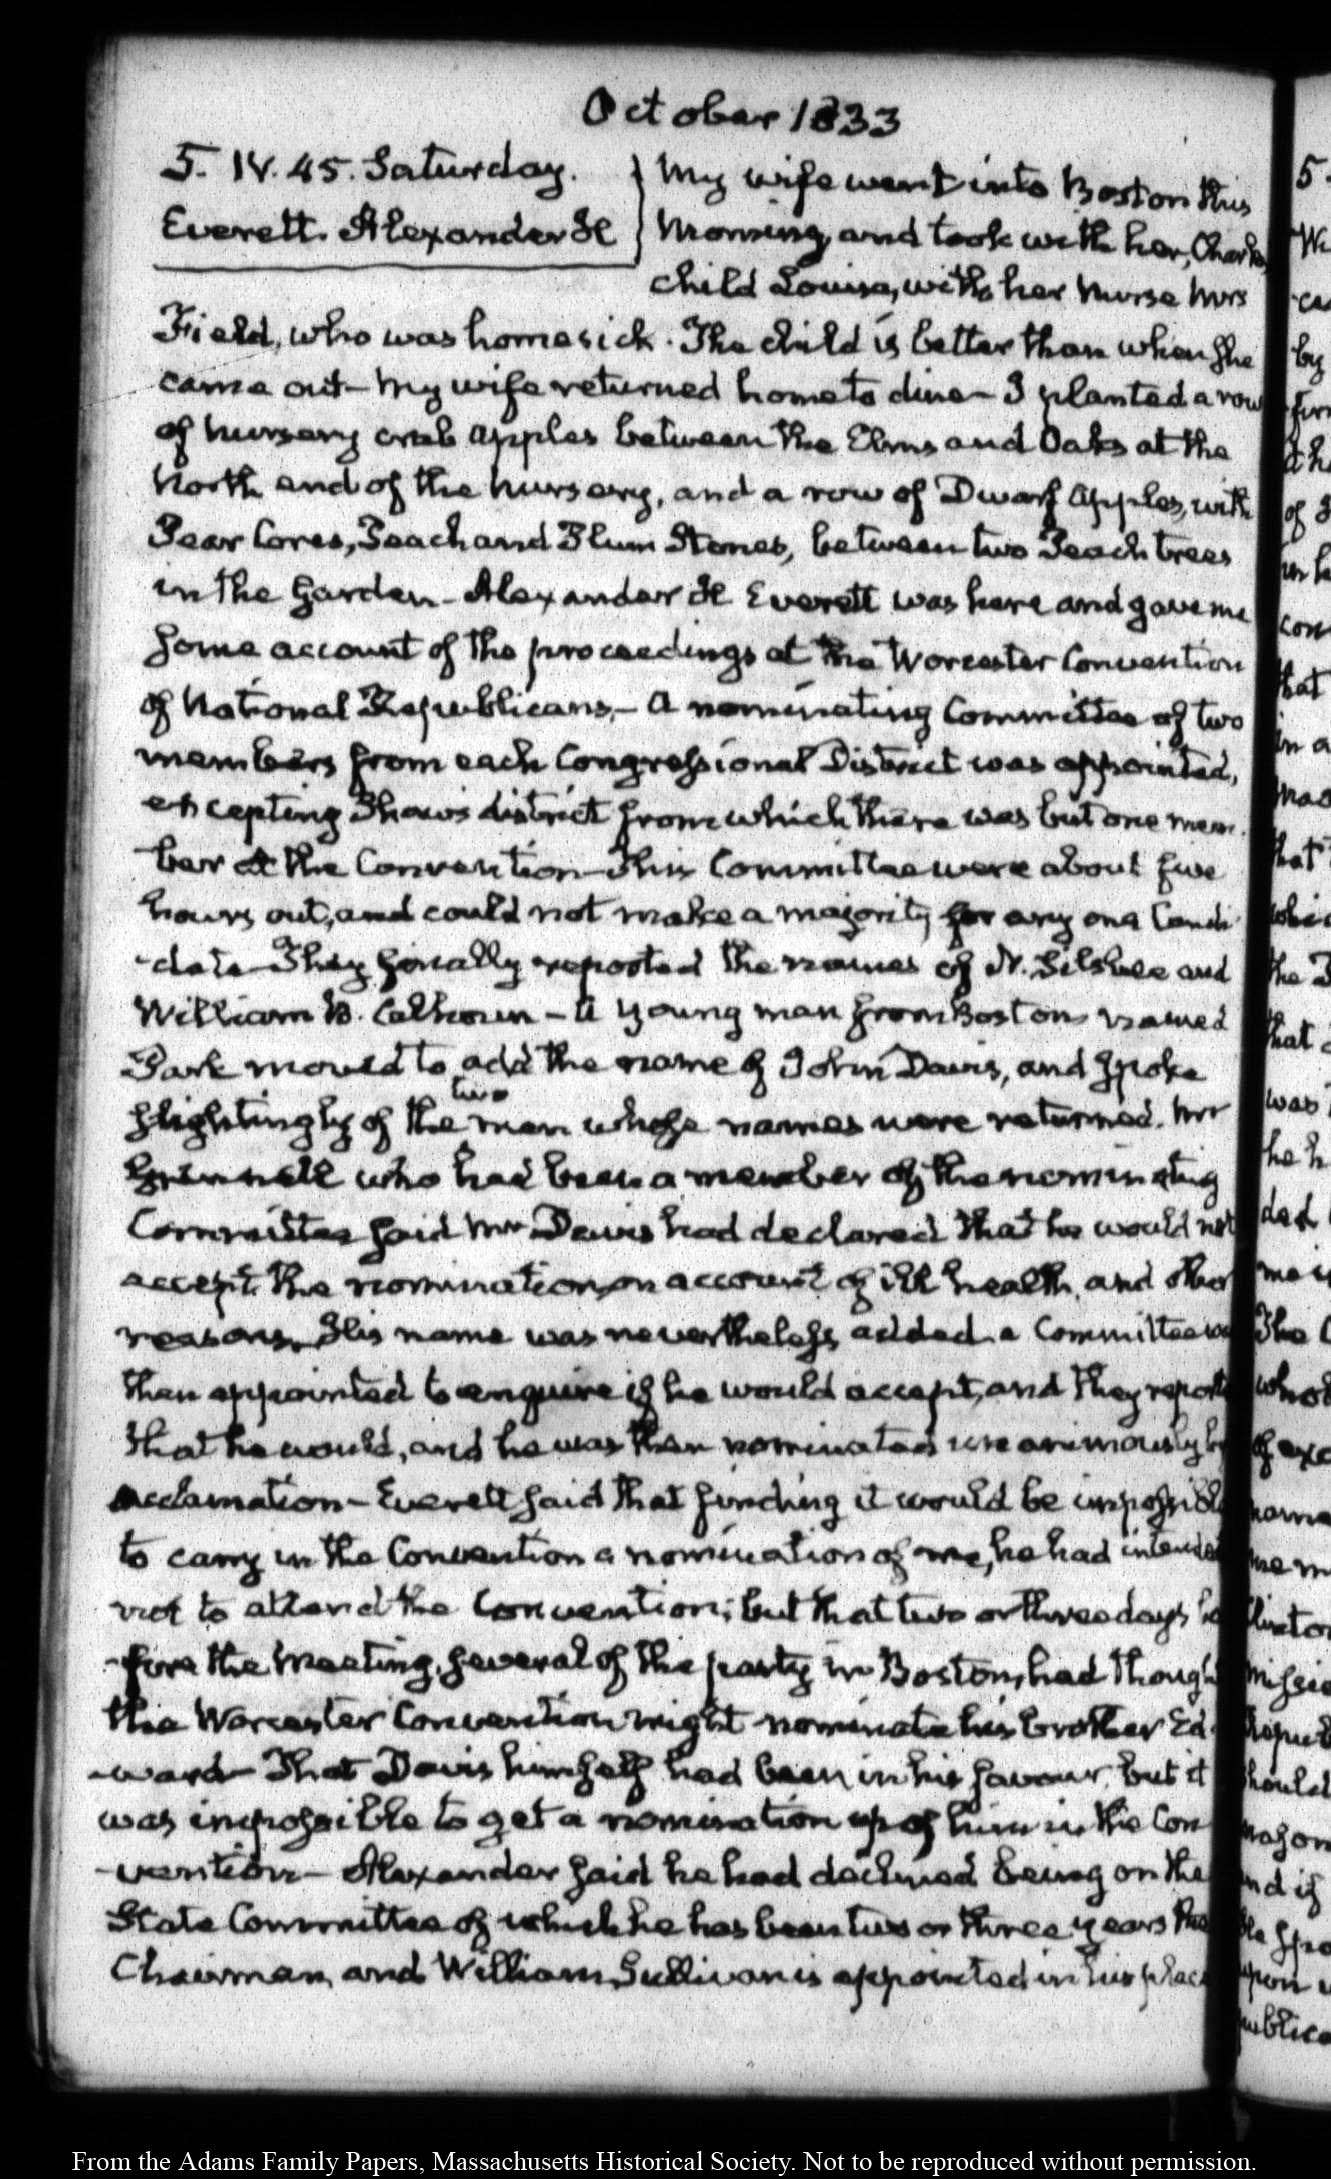 October 1833
5. IV. 45. Saturday.
Everett. Alexander H
My wife went into Boston this
morning, and took with her, Charles's
child Louisa, with her Nurse Mrs
Field, who was homesick. The child is better than when she
came out— My wife returned home to dine— I planted a row
of nursery crab apples between the Elms and Oaks at the
North end of the nursery, and a row of Dwarf apples, with
Pear Cores, Peach and Plum Stones, between two Peach trees
in the Garden— Alexander H Everett was here and gave me
some account of the proceedings at the Worcester Convention
of National Republicans,— A nominating Committee of two
members from each Congressional District was appointed,
excepting Shaw's district from which there was but one mem-
ber at the Convention— This Committee were about five
hours out, and could not make a majority for any one Candi-
-date— They finally reported the names of N. Silsbee and
William B. Calhoun— A young man from Boston named
Park moved to add the name of John Davis, and spoke
slightingly of the two men whose names were returned. Mr
Grinnell who had been a member of the nominating
Committee said Mr Davis had declared that he would not
accept the nomination on account of ill health, and other
reasons. His name was nevertheless added. a Committee was
then appointed to enquire if he would accept, and they reported
that he would, and he was then nominated unanimously by
acclamation— Everett said that finding it would be impossible
to carry in the Convention a nomination of me, he had intended
not to attend the Convention; but that two or three days be
-fore the meeting, several of the party in Boston, had thought
the Worcester Convention might nominate his brother Ed-
-ward— That Davis himself had been in his favour, but it
was impossible to get a nomination up of him in the Con
-vention— Alexander said he had declined being on the
State Committee of which he has been two or three years the
Chairman, and William Sullivan is appointed in his place
From the Adams Family Papers, Massachusetts Historical Society. Not to be reproduced without permission.